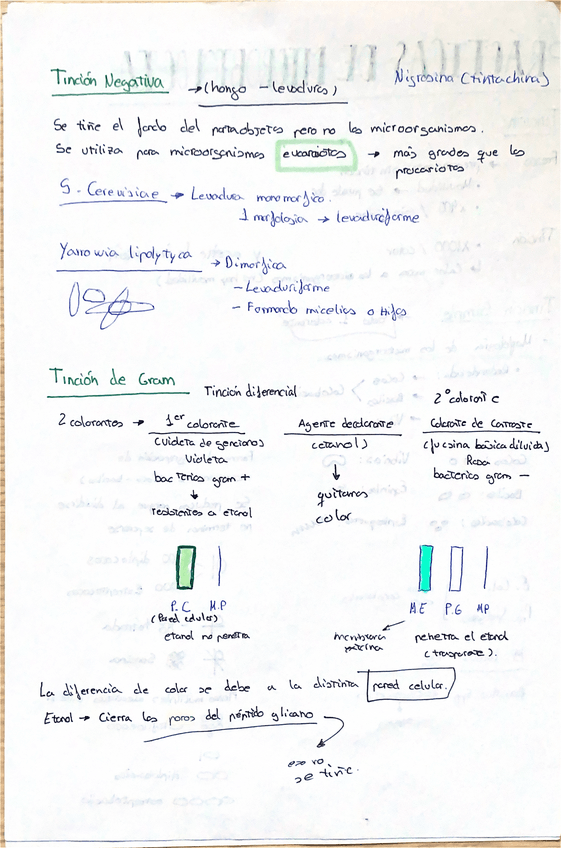 Tinción Negativa → (hongo - levaduras) Nigrosina (tinta china)
Se tiñe el fondo del portaobjetos pero no los microorganismos.
Se utiliza para microorganismos eucariotas → más grades que los
procariotas
S. Cerevisiae → Levadura monomorfico.
1 morfologia → levaduriforme
Yarrowia lipolytyca → Dimorfica
- Levaduriforme
- Formando micelios o Hifas
Tinción de Gram Tinción diferencial
2º colorante
2 colorantes → 1er colorante Agente decolorante Colorate de contraste
(violeta de genciana) (etanol) (fucsina básica diluida)
violeta Rosa
bacterias gram + bacterias gram -
↓ quitamos
resistentes a etanol color
P.C M.P M.E P.G MP
(Pared celular)
etanol no penetra membrana externa penetra el etanol
(trasparate).
La diferencia de color se debe a la distinta pared celular.
Etanol → Cierra los poros del péptido glicano
eso no
se tiñe.